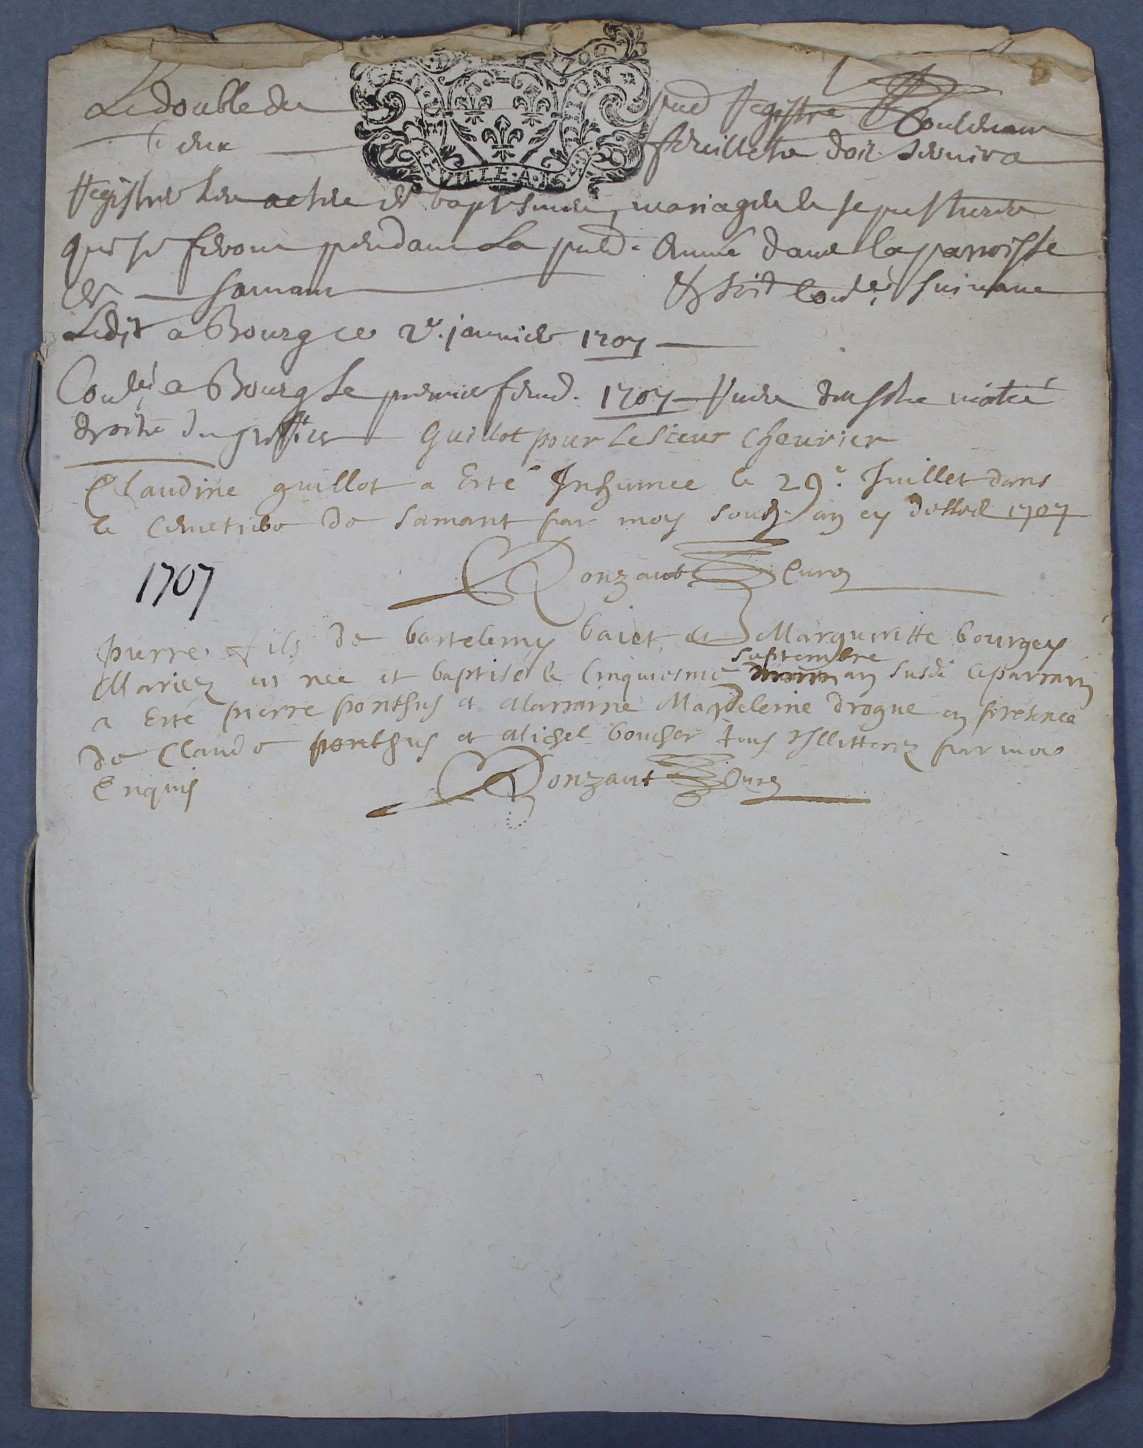 Le double du pnt Registre Contenant
deux feuillets doit servir a
Registrer les actes de baptesmes, mariages & sepultures
qui se feront pendant La pnte Année dans la paroisse
de Samans & soit Coulé suivant
Ledit a Bourg ce 2e. janvier 1707
Coulé a Bourg Le premier fevr. 1707
droits du greffier Guillot pour Le Sieur Cheurier
Claudine guillot a Esté Inhumee le 29e. Juillet dans
le Cemetiere de Samant par moy soubz an et dessus 1707
Donzaut Curé
1707
pierre fils de bartelemy baict et Margueritte bourgey
Mariez est née et baptisé le Cinquiesme septembre an susd le parrain
a Esté pierre ponthus et Marraine Magdeleine drogue en presence
de Claude ponthus et Michel boucher tous Illitterez par moy
Enquis Donzaut Curé